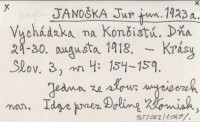 JANOŠKA Jur jun. 1923 a.
Vychádzka na Končistú. Dňa
29-30. augusta 1918. — Krásy
Slov. 3, nr 4: 154-159.
Jedna ze słow. wycieczek
nar. Idąc przez Dolinę Złomisk,